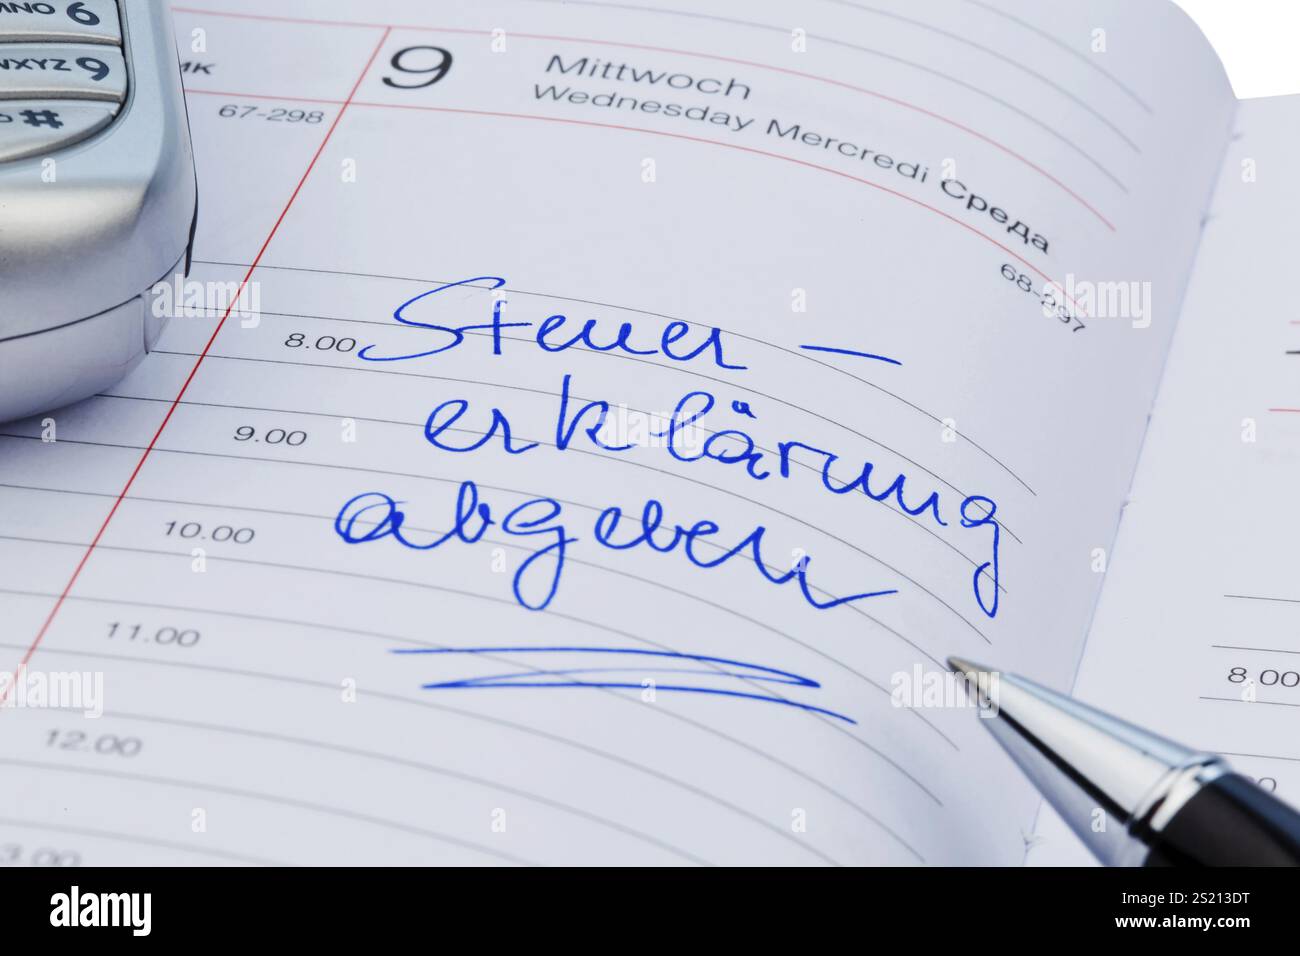 MNO 6
WXYZ 9
#
МК
67-298
9 Mittwoch
Wednesday Mercredi Среда
68-297
Steuer –
8.00
erklärung
9.00
abgeben
10.00
11.00
12.00
3.00
8.00
alamy
Image ID: 2S213DT
www.alamy.com